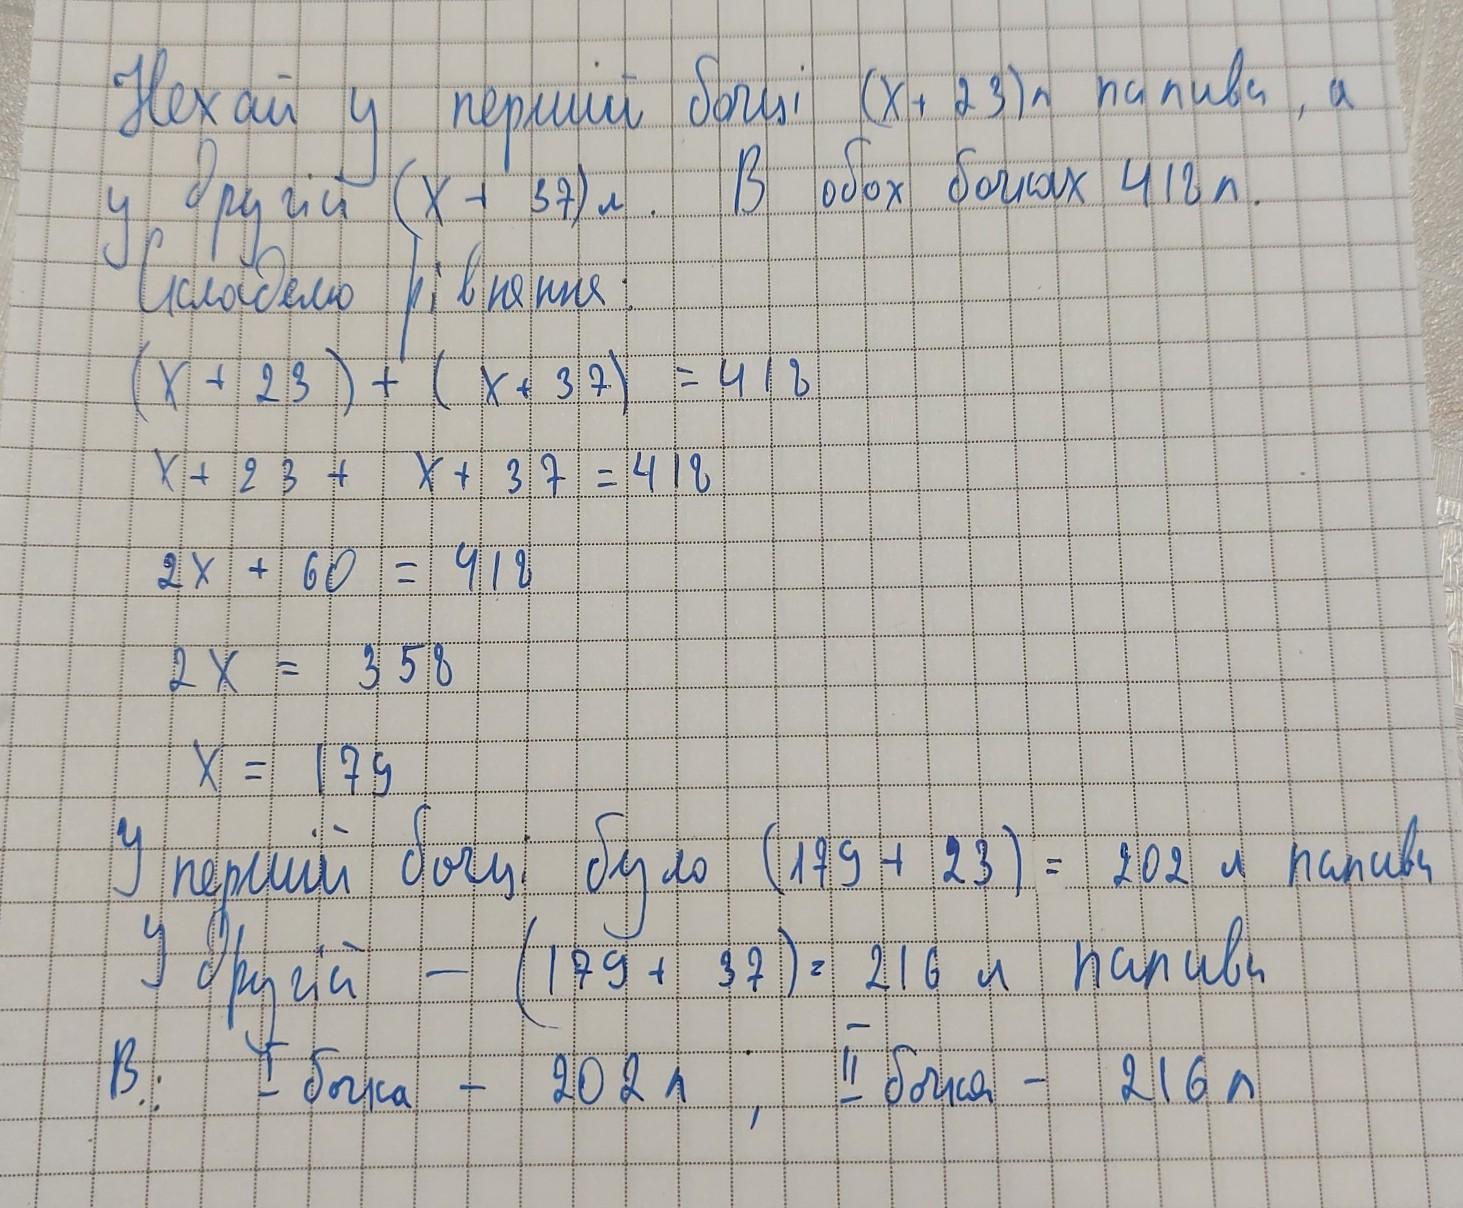 Нехай у першій бочці (x + 23) л палива, а
у другій (x + 37) л. В обох бочках 418 л.
Складемо рівняння:
(x + 23) + (x + 37) = 418
x + 23 + x + 37 = 418
2x + 60 = 418
2x = 358
x = 179
У першій бочці було (179 + 23) = 202 л палива
У другій – (179 + 37) = 216 л палива
В.: I бочка – 202 л, II бочка – 216 л